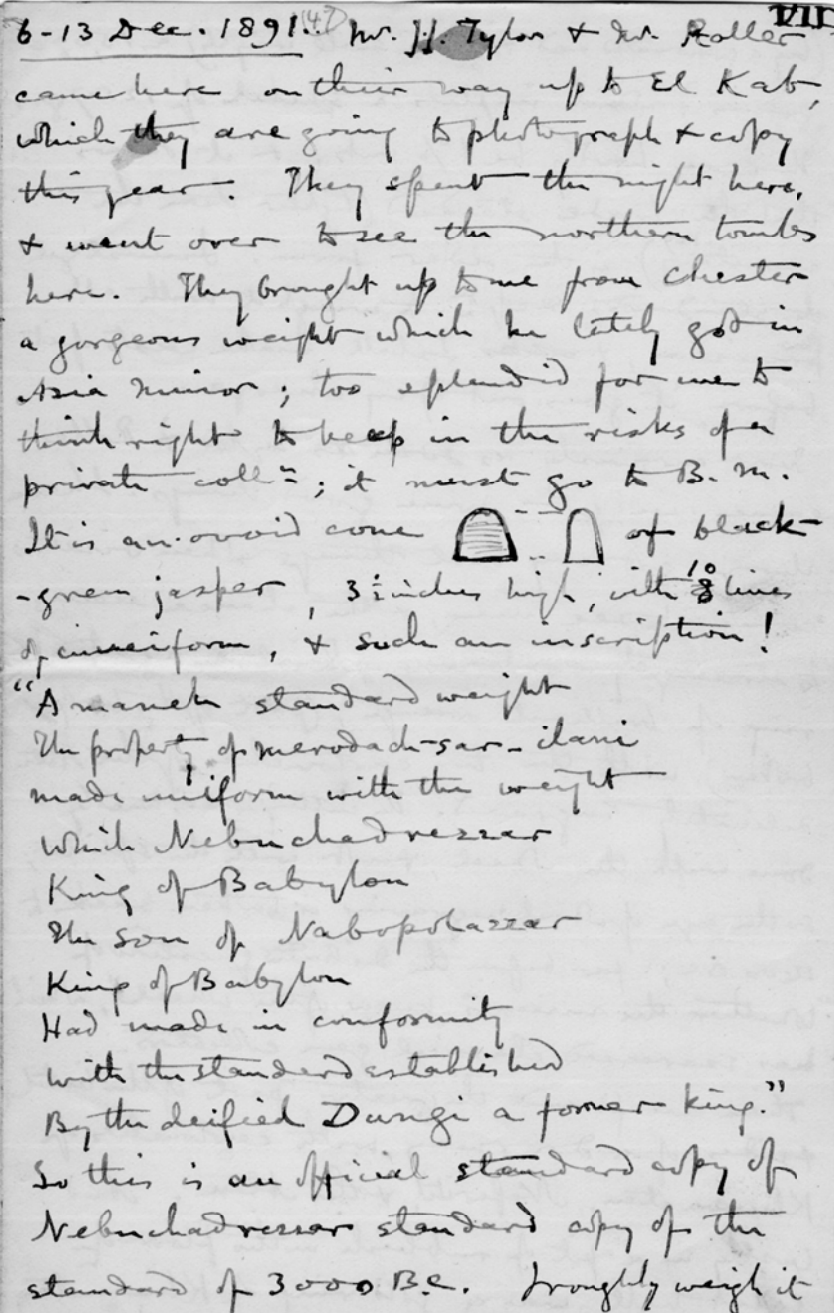 (47) VII
6-13 Dec. 1891. Mr. J.J. Tylor & Mr. Roller
came here on their way up to El Kab,
which they are going to photograph & copy
this year. They spent the night here,
& went over to see the northern tombs
here. They brought up to me from Chester
a gorgeous weight which he lately got in
Asia Minor; too splendid for me to
think right to keep in the risks of a
private colln; it must go to B.M.
It is an ovoid cone of black
-green jasper, 3¾ inches high, with 10 lines
of cuneiform, & such an inscription!
"A maneh standard weight
The property of Merodach-sar-ilani
made uniform with the weight
which Nebuchadrezzar
King of Babylon
The son of Nabopolazzar
King of Babylon
Had made in conformity
with the standard established
By the deified Dungi a former King."
So this is an official standard copy of
Nebuchadrezzar standard copy of the
standard of 3000 B.C. I roughly weigh it